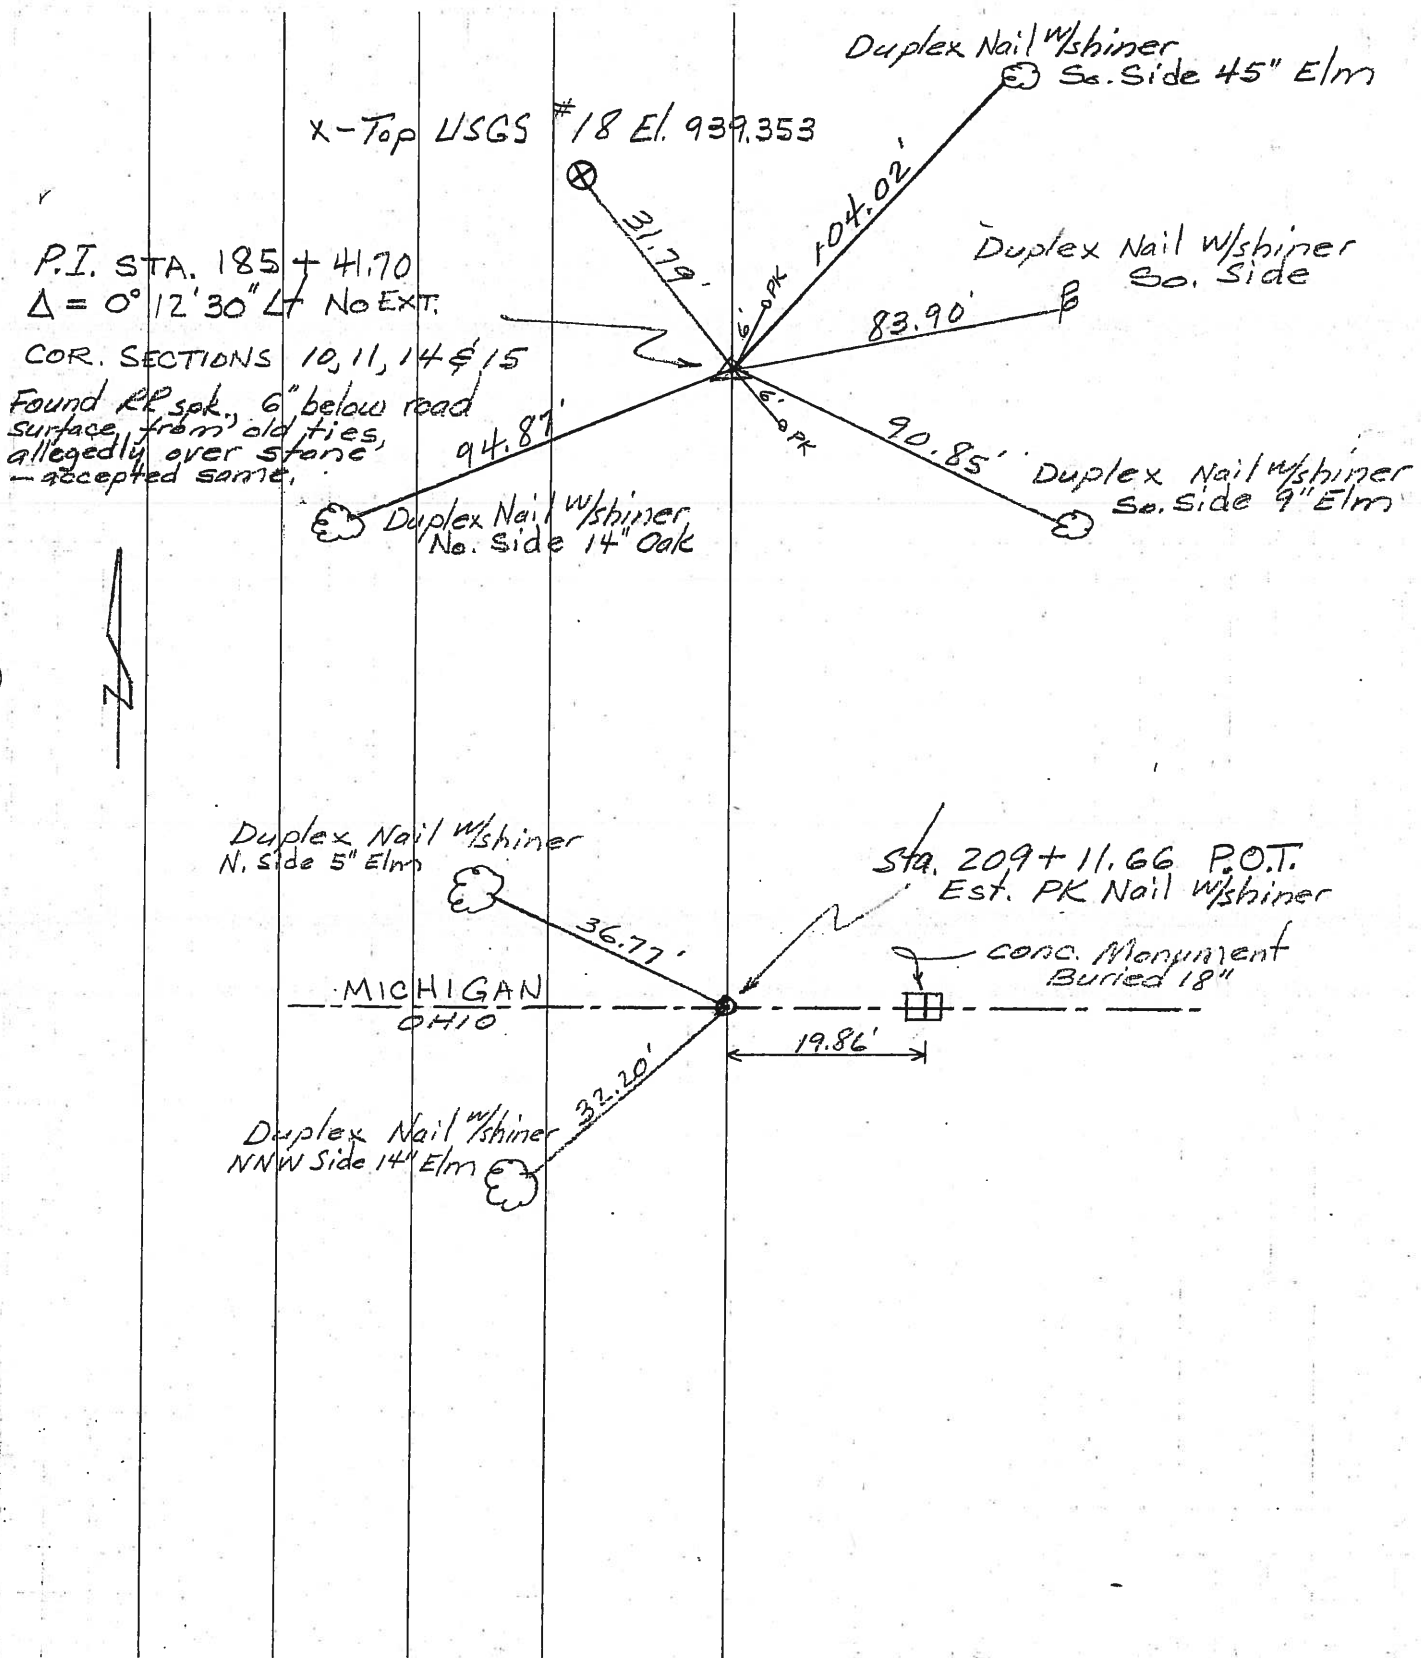 Duplex Nail w/shiner
So. Side 45" Elm
X-Top USGS #18 El. 939.353
31.79'
104.02'
P.I. STA. 185 + 41.70
Δ = 0° 12' 30" Lt No EXT.
COR. SECTIONS 10, 11, 14 & 15
Found RR spk., 6" below road
surface, from old ties,
allegedly over stone
- accepted same.
6' PK
83.90'
Duplex Nail w/shiner
So. Side
6' PK
94.87'
90.85'
Duplex Nail w/shiner
So. Side 9" Elm
Duplex Nail w/shiner
No. Side 14" Oak
N
Duplex Nail w/shiner
N. Side 5" Elm
36.77'
Sta. 209 + 11.66 P.O.T.
Est. PK Nail w/shiner
conc. Monument
Buried 18"
MICHIGAN
OHIO
19.86'
32.20'
Duplex Nail w/shiner
NNW Side 14" Elm